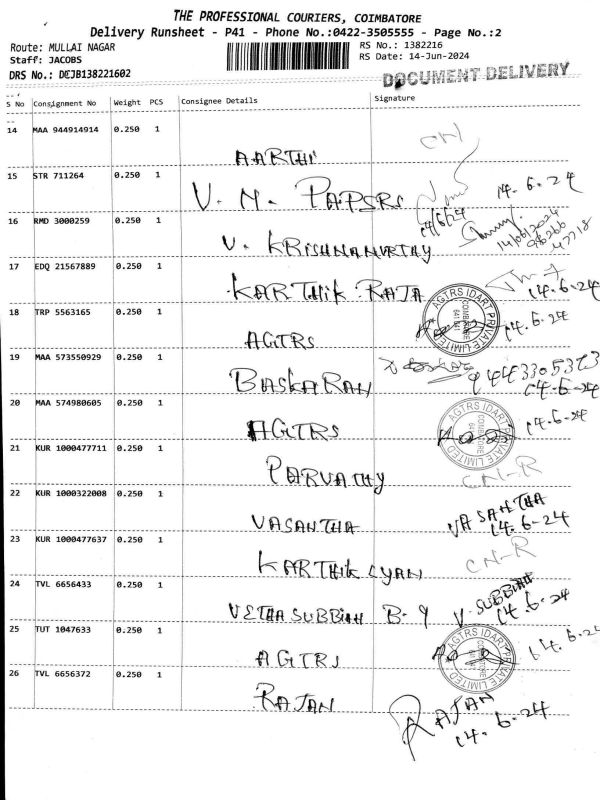 THE PROFESSIONAL COURIERS, COIMBATORE
Delivery Runsheet - P41 - Phone No.:0422-3505555 - Page No.:2
Route: MULLAI NAGAR
RS No.: 1382216
Staff: JACOBS
RS Date: 14-Jun-2024
DRS No.: DCJB138221602
DOCUMENT DELIVERY
S No Consignment No Weight PCS Consignee Details Signature
14 MAA 944914914 0.250 1
AARTHI CN
15 STR 711264 0.250 1
V. M. PAPERS 14/6/24 14.6.24
16 RMD 3000259 0.250 1
V. KRISHNAMURTHY 14/06/2024
17 EDQ 21567889 0.250 1
KARTHIK RAJA 14.6-24
18 TRP 5563165 0.250 1
AGTRS AGTRS IDART PRIVATE LIMITED COIMBATORE 641 041 14.6-24
19 MAA 573550929 0.250 1
BASKARAN 9443305373
14-6-24
20 MAA 574980605 0.250 1
AGTRS AGTRS IDART PRIVATE LIMITED COIMBATORE 14.6-24
21 KUR 1000477711 0.250 1
PARVATHY CN-R
22 KUR 1000322008 0.250 1
VASANTHA VASANTHA
14.6-24
23 KUR 1000477637 0.250 1
KARTHIK LYAN CN-R
24 TVL 6656433 0.250 1
VETHA SUBBIAH B-9 V. SUBBIAH
14.6-24
25 TUT 1047633 0.250 1
AGTRS AGTRS IDART PRIVATE LIMITED 14.6-24
26 TVL 6656372 0.250 1
RAJAN RAJAN
14.6-24